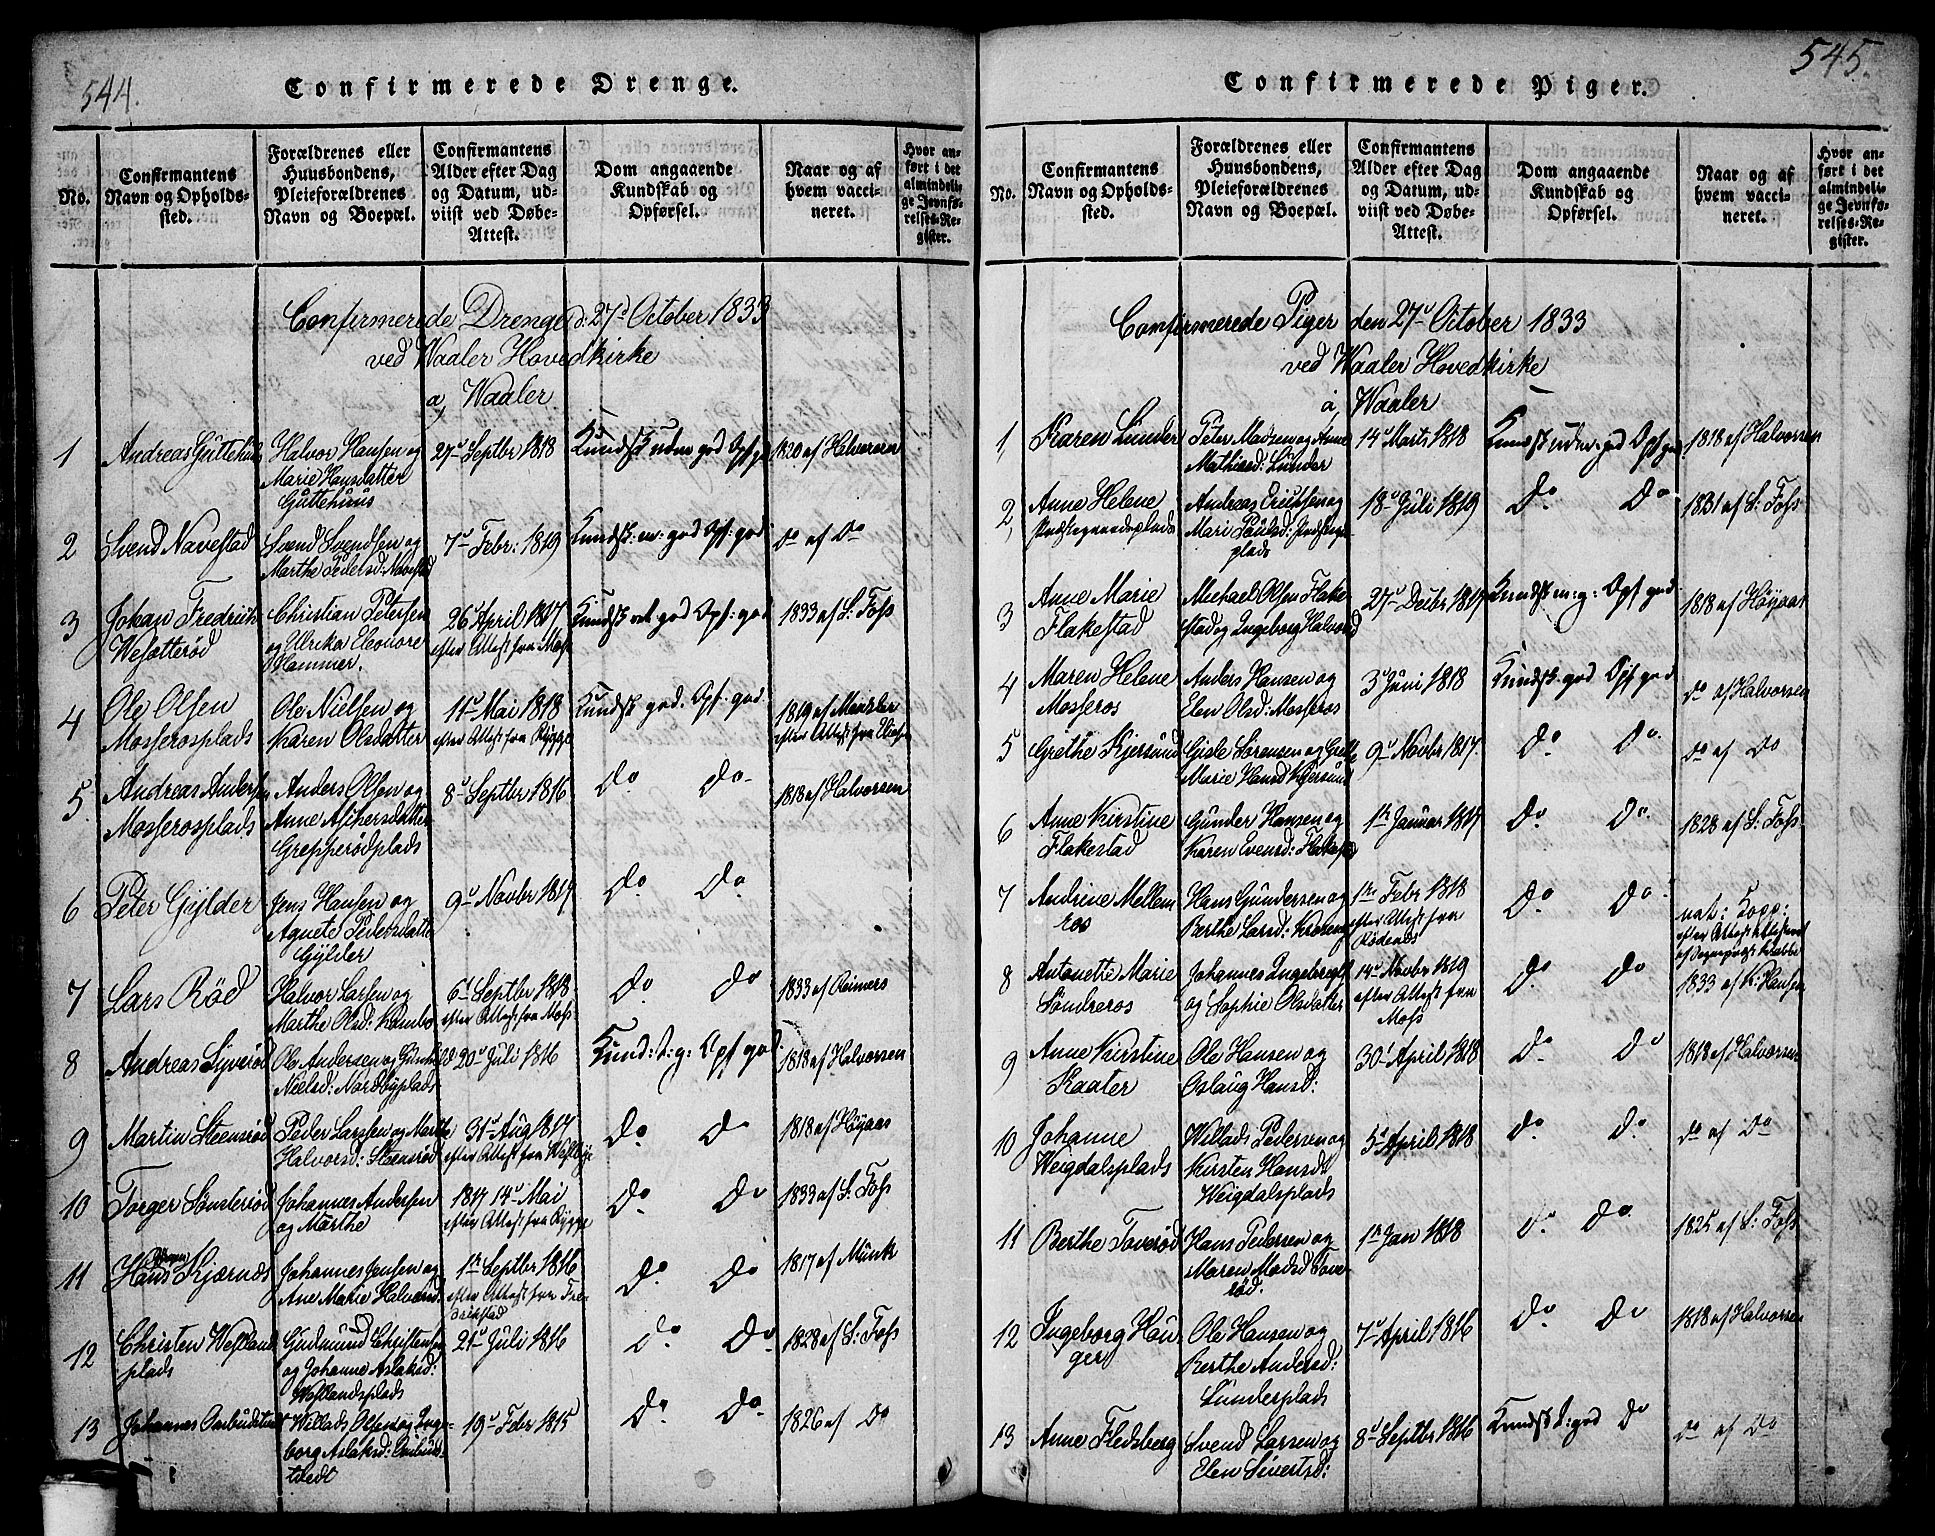 544.
Confirmerede Drenge.
No.
Confirmantens
Navn og Opholds-
sted.
Forældrenes eller
Huusbondens,
Pleieforældrenes
Navn og Boepæl.
Confirmantens
Alder efter Dag
og Datum, ud-
viist ved Døbe-
Attest.
Dom angaaende
Kundskab og
Opførsel.
Naar og af
hvem vacci-
neret.
Hvor an-
ført i det
almindeli-
ge Jevnfø-
relses-Re-
gister.
Confirmerede Drenge d: 27d October 1833
ved Waaler Hovedkirke
a, Waaler
1 Andreas Guttehuus
Halvor Hansen og
Marie Hansdatter
Guttehuus
27d Septbr 1818
Kundsk uden god Opf: god
1820 af Halvorsen
2 Svend Navestad
Svend Svendsen og
Marthe Pedersd: Navestad
7d Febr: 1819
Kundsk: m: god Opf: god
Do af Do
3 Johan Fredrich
Wesætterød
Christian Petersen
og Ulrika Eleonore
Hammer.
26d April 1817
efter Attest fra Moss
Kundsk god Opf: god
1833 af S: Foss
4 Ole Olsen
Mosserosplads
Ole Nielsen og
Karen Olsdatter
11d Mai 1818
efter Attest fra Rygge
Kundsk god. Opf: god
1819 af
efter Attest fra
5. Andreas Andersen
Mosserosplads
Anders Olsen og
Anne
Grepperødplads
8d Septbr 1816
Do Do
1818 af Halvorsen
6 Peter Gylder
Jens Hansen og
Agnete Pedersdatter
Gylder
9d Novbr 1817
Do Do
7 Lars Rød
Halvor Larsen og
Marthe Olsd: Kambo
6d Septbr 1818
efter Attest fra Moss
Do Do
1833 af Reimers
8 Andreas Syverød
Ole Andersen og Gunhild
Nielsd: Nordbyplads
20d Juli 1816
Kund: t: g: Opf god
1818 af Halvorsen
9 Martin Steensrød
Peder Larssen og Marthe
Halvorsd: Steensrød
31d Aug 1817
efter Attest fra Westbye
Do Do
1818 af Høyaas
10 Torger Sønsterød
Johannes Andersen
og Marthe
1817 14d Mai
efter Attest fra Rygge
Do Do
1833 af S: Foss
11 Hans Kjærnæs
Johannes Jensen og
Ane Marie Halvorsd:
1n Septbr 1816
efter Attest fra Fre-
drikstad
Do Do
1817 af Munk
12 Christen Westland
plads
Gudmund Christensen
og Johanne Aslaksd:
Westlandsplads
21d Juli 1816
Do Do
1828 af S: Foss
13 Johannes
Willads Olsen og Inge-
borg Aslaksd:
19d Febr 1815
Do Do
1826 af Do
545.
Confirmerede Piger.
No.
Confirmantens
Navn og Opholds-
sted.
Forældrenes eller
Huusbondens,
Pleieforældrenes
Navn og Boepæl.
Confirmantens
Alder efter Dag
og Datum, ud-
viist ved Døbe-
Attest.
Dom angaaende
Kundskab og
Opførsel.
Naar og af
hvem vacci-
neret.
Hvor an-
ført i det
almindeli-
ge Jevnfø-
relses-Re-
gister.
Confirmerede Piger den 27d October 1833
ved Waaler Hovedkirke
a, Waaler
1, Karen Lunder
Peter Madsen og Anne
Mathisd: Lunder
14d Marts 1818
Kundsk uden god Opf god
1818 af Halvorsen
2, Anne Helene
Præstegaardsplads
Andreas Erichsen og
Mari Poulsd:
plads
18d Juli 1819
Do Do
1831 af S: Foss
3 Anne Marie
Flakestad
Michael Olsen Flake-
stad og Ingeborg Halvorsd
27d Decbr 1817
Kundsk m: g: Opf god
1818 af Høyaas
4 Maren Helene
Mosseros
Anders Hansen og
Elen Olsd: Mosseros
3d Juni 1818
Kundsk: god Opf god
do af Halvorsen
5 Grethe Kjersund
Gisle Sörensen og Grethe
Marie Hansd Kjersund
9d Novbr 1817
Do Do
do af Do
6 Anne Kirstine
Flakestad
Gunder Hansen og
Karen Evensd: Flakestad
1n Januar 1817
Do Do
1828 af S: Foss
7 Andrine Mellem
ros
Hans Gundersen og
Berthe Larsd:
1n Febr 1818
efter Attest fra
Rødenes
Do Do
nat: Kopp:
efter Attest
8 Antonette Marie
Sondreros
Johannes Ingebregts
og Sophie Olsdatter
14d Novbr 1819
efter Attest fra
Moss
Do Do
1833 af K: Hansen
9 Anne Kirstine
Kaater
Ole Hansen og
Oslaug Hansd:
30d April 1818
Do Do
1818 af Halvorsen
10 Johanne
Weigdalsplads
Willads Pedersen og
Kirsten Hansd:
Weigdalsplads
5d April 1818
Do Do
do af Do
11 Berthe Toverød
Hans Pedersen og
Maren Madsd Tove-
rød.
1n Jan 1818
Do Do
1825 af S: Foss
12 Ingeborg Hau
ger
Ole Hansen og
Berthe Andersd:
Lunderplads
7d April 1816
Do Do
1818 af Halvorsen
13 Anne Fledsberg
Svend Larsen og
Elen Sivertsd:
8d Septbr 1816
Kundsk t: god Do
do af Do